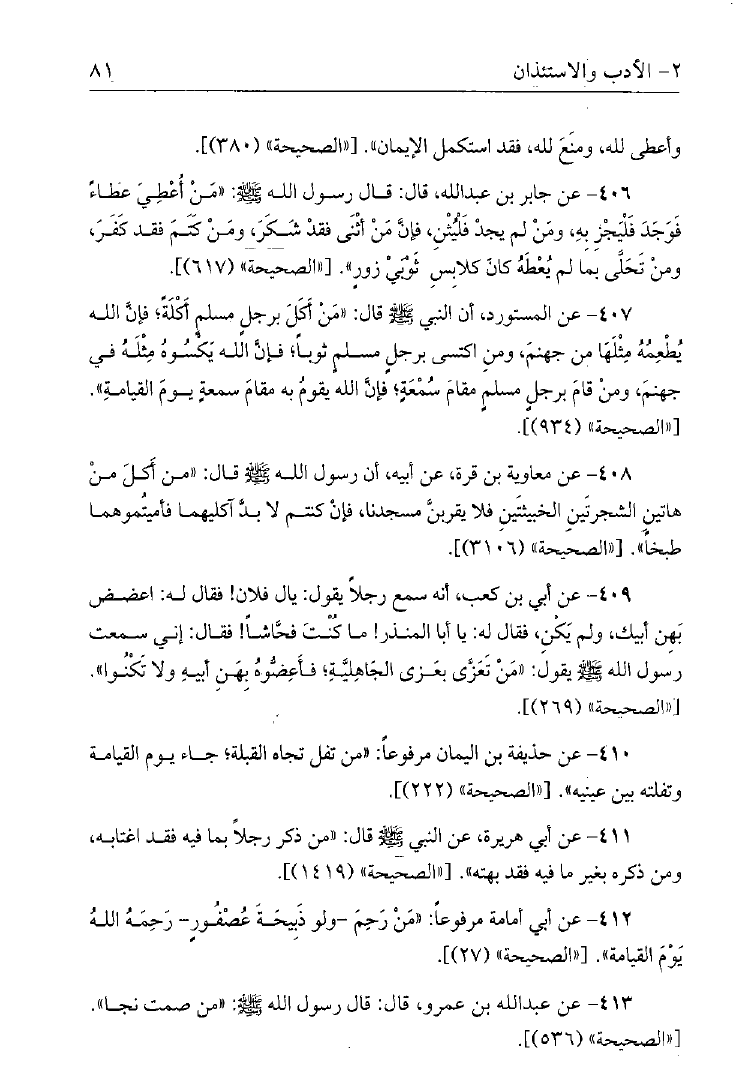 ٢- الأدب والاستئذان ٨١
وأعطى لله، ومنَعَ لله، فقد استكمل الإيمان». [«الصحيحة» (٣٨٠)].
٤٠٦- عن جابر بن عبدالله، قال: قـال رسـول اللـه ﷺ: «مَـنْ أُعْطِـيَ عَطـاءً
فَوَجَدَ فَلْيَجْزِ بِهِ، ومَنْ لم يجدْ فَلْيُثْنِ، فإنَّ مَنْ أَثْنى فقدْ شَـكَرَ، ومَـنْ كَتَـمَ فقـد كَفَـرَ،
ومنْ تَحَلَّى بما لم يُعْطَهُ كانَ كلابِسِ ثَوْبَيْ زورٍ». [«الصحيحة» (٦١٧)].
٤٠٧- عن المستورد، أن النبي ﷺ قال: «مَنْ أَكَلَ برجلٍ مسلمٍ أكْلَةً؛ فإنَّ اللـه
يُطْعِمُهُ مِثْلَهَا من جهنمَ، ومنِ اكتسى برجلٍ مسـلمٍ ثوبـاً؛ فـإنَّ اللـه يَكْسُـوهُ مِثْلَـهُ فـي
جهنمَ، ومنْ قامَ برجلٍ مسلمٍ مقامَ سُمْعَةٍ؛ فإنَّ الله يقومُ به مقامَ سمعةٍ يـومَ القيامـةِ».
[«الصحيحة» (٩٣٤)].
٤٠٨- عن معاوية بن قرة، عن أبيه، أن رسـول اللـه ﷺ قـال: «مـن أَكـلَ مـنْ
هاتينِ الشجرتَينِ الخبيثتَينِ فلا يقربنَّ مسجدنا، فإنْ كنتـم لا بـدَّ آكليهمـا فأميتُموهمـا
طبخاً». [«الصحيحة» (٣١٠٦)].
٤٠٩- عن أبي بن كعب، أنه سمع رجلاً يقول: يال فلان! فقال لـه: اعضـض
بَهن أبيك، ولم يَكْنِ، فقال له: يا أبا المنـذر! مـا كُنْـتَ فحَّاشـاً! فقـال: إنـي سـمعت
رسول الله ﷺ يقول: «مَنْ تَعَزَّى بعَـزى الجَاهليَّـةِ؛ فـأَعِضُّوهُ بِهَـنِ أبيـهِ ولا تَكْنُـوا».
[«الصحيحة» (٢٦٩)].
٤١٠- عن حذيفة بن اليمان مرفوعاً: «من تفل تجاه القبلة؛ جـاء يـوم القيامـة
وتفلته بين عينيه». [«الصحيحة» (٢٢٢)].
٤١١- عن أبي هريرة، عن النبي ﷺ قال: «من ذكر رجلاً بما فيه فقـد اغتابـه،
ومن ذكره بغير ما فيه فقد بهته». [«الصحيحة» (١٤١٩)].
٤١٢- عن أبي أمامة مرفوعاً: «مَنْ رَحِمَ -ولو ذَبيحَـةَ عُصْفُـورٍ- رَحِمَـهُ اللـهُ
يَوْمَ القيامة». [«الصحيحة» (٢٧)].
٤١٣- عن عبدالله بن عمرو، قال: قال رسول الله ﷺ: «من صمت نجـا».
[«الصحيحة» (٥٣٦)].